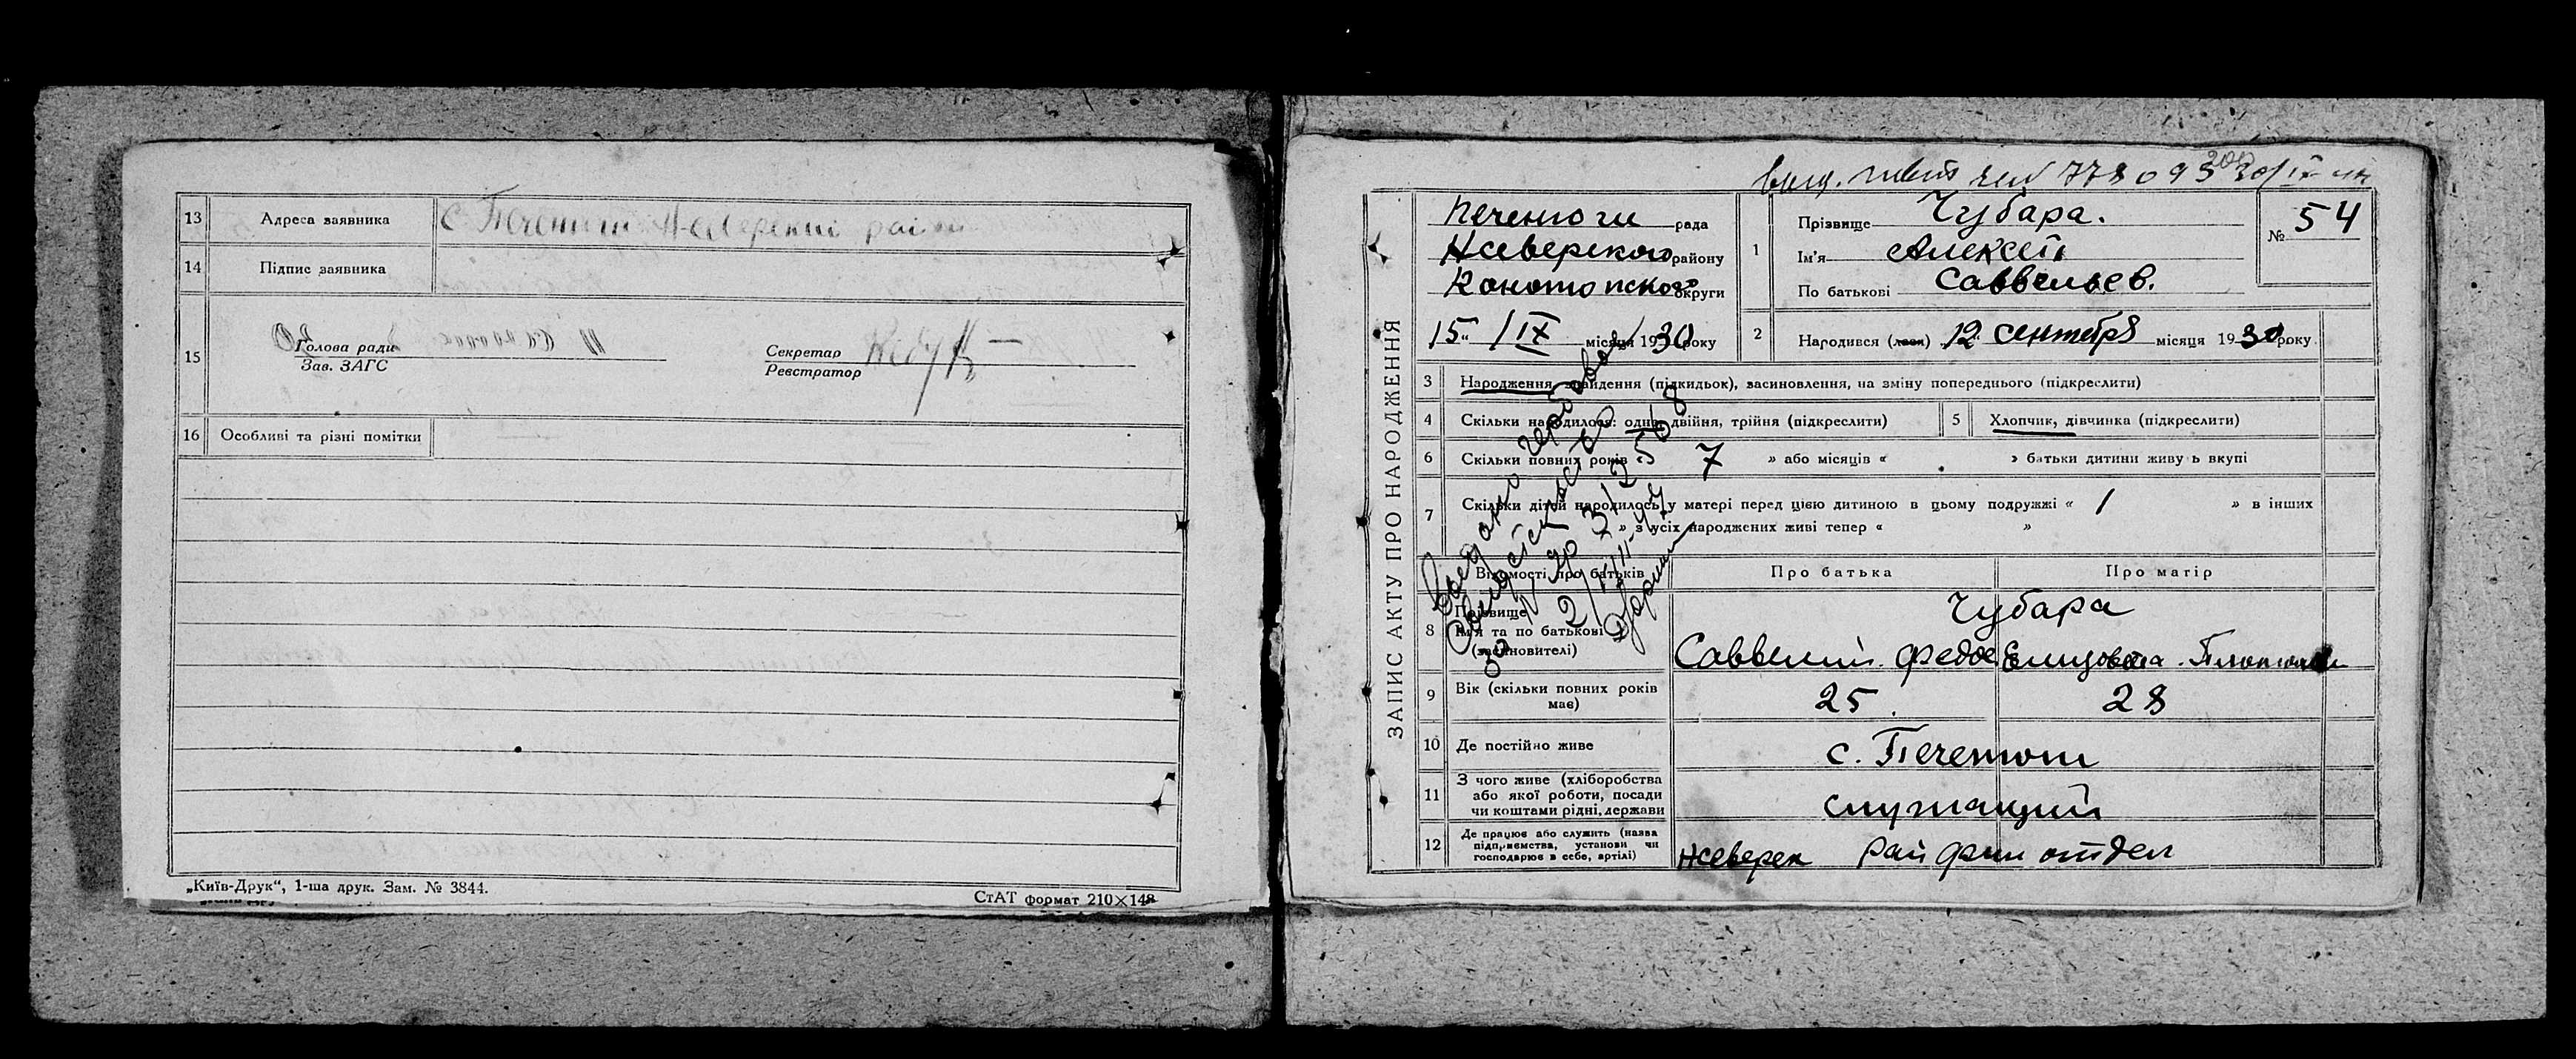 13 Адреса заявника с. Печенюги Н-Северский район
14 Підпис заявника
15 Голова ради
Зав. ЗАГС
Секретар
Реєстратор
16 Особливі та різні помітки
„Київ-Друк“, 1-ша друк. Зам. № 3844.
СтАТ формат 210×148
778093
ЗАПИС АКТУ ПРО НАРОДЖЕННЯ
Печенюги рада
Нсеверского району
Конотопского округи
15 / IX місяця 1930 року
1 Прізвище Чубара.
Ім'я Алексей
По батькові Саввельев.
№ 54
2 Народився (лась) 12 сентебря місяця 1930 року
3 Народження, знайдення (підкидьок), засиновлення, на зміну попереднього (підкреслити)
4 Скільки народилося: одна, двійня, трійня (підкреслити)
5 Хлопчик, дівчинка (підкреслити)
6 Скільки повних років 7 » або місяців « » батьки дитини живуть вкупі
7 Скільки дітей народилось у матері перед цією дитиною в цьому подружжі « 1 » в інших
» з усіх народжених живі тепер « »
Відомості про батьків Про батька Про матір
8 Прізвище Чубара
Ім'я та по батькові Саввелий. Федос Елизовета
(засиновителі)
9 Вік (скільки повних років має) 25. 28
10 Де постійно живе с. Печенюги
11 З чого живе (хліборобства
або якої роботи, посади служащий
чи коштами рідні, держави
12 Де працює або служить (назва
підприємства, установи чи
господарює в себе, артілі) Нсеверск Рай фин отдел
Выдано гербовое
свидетельство